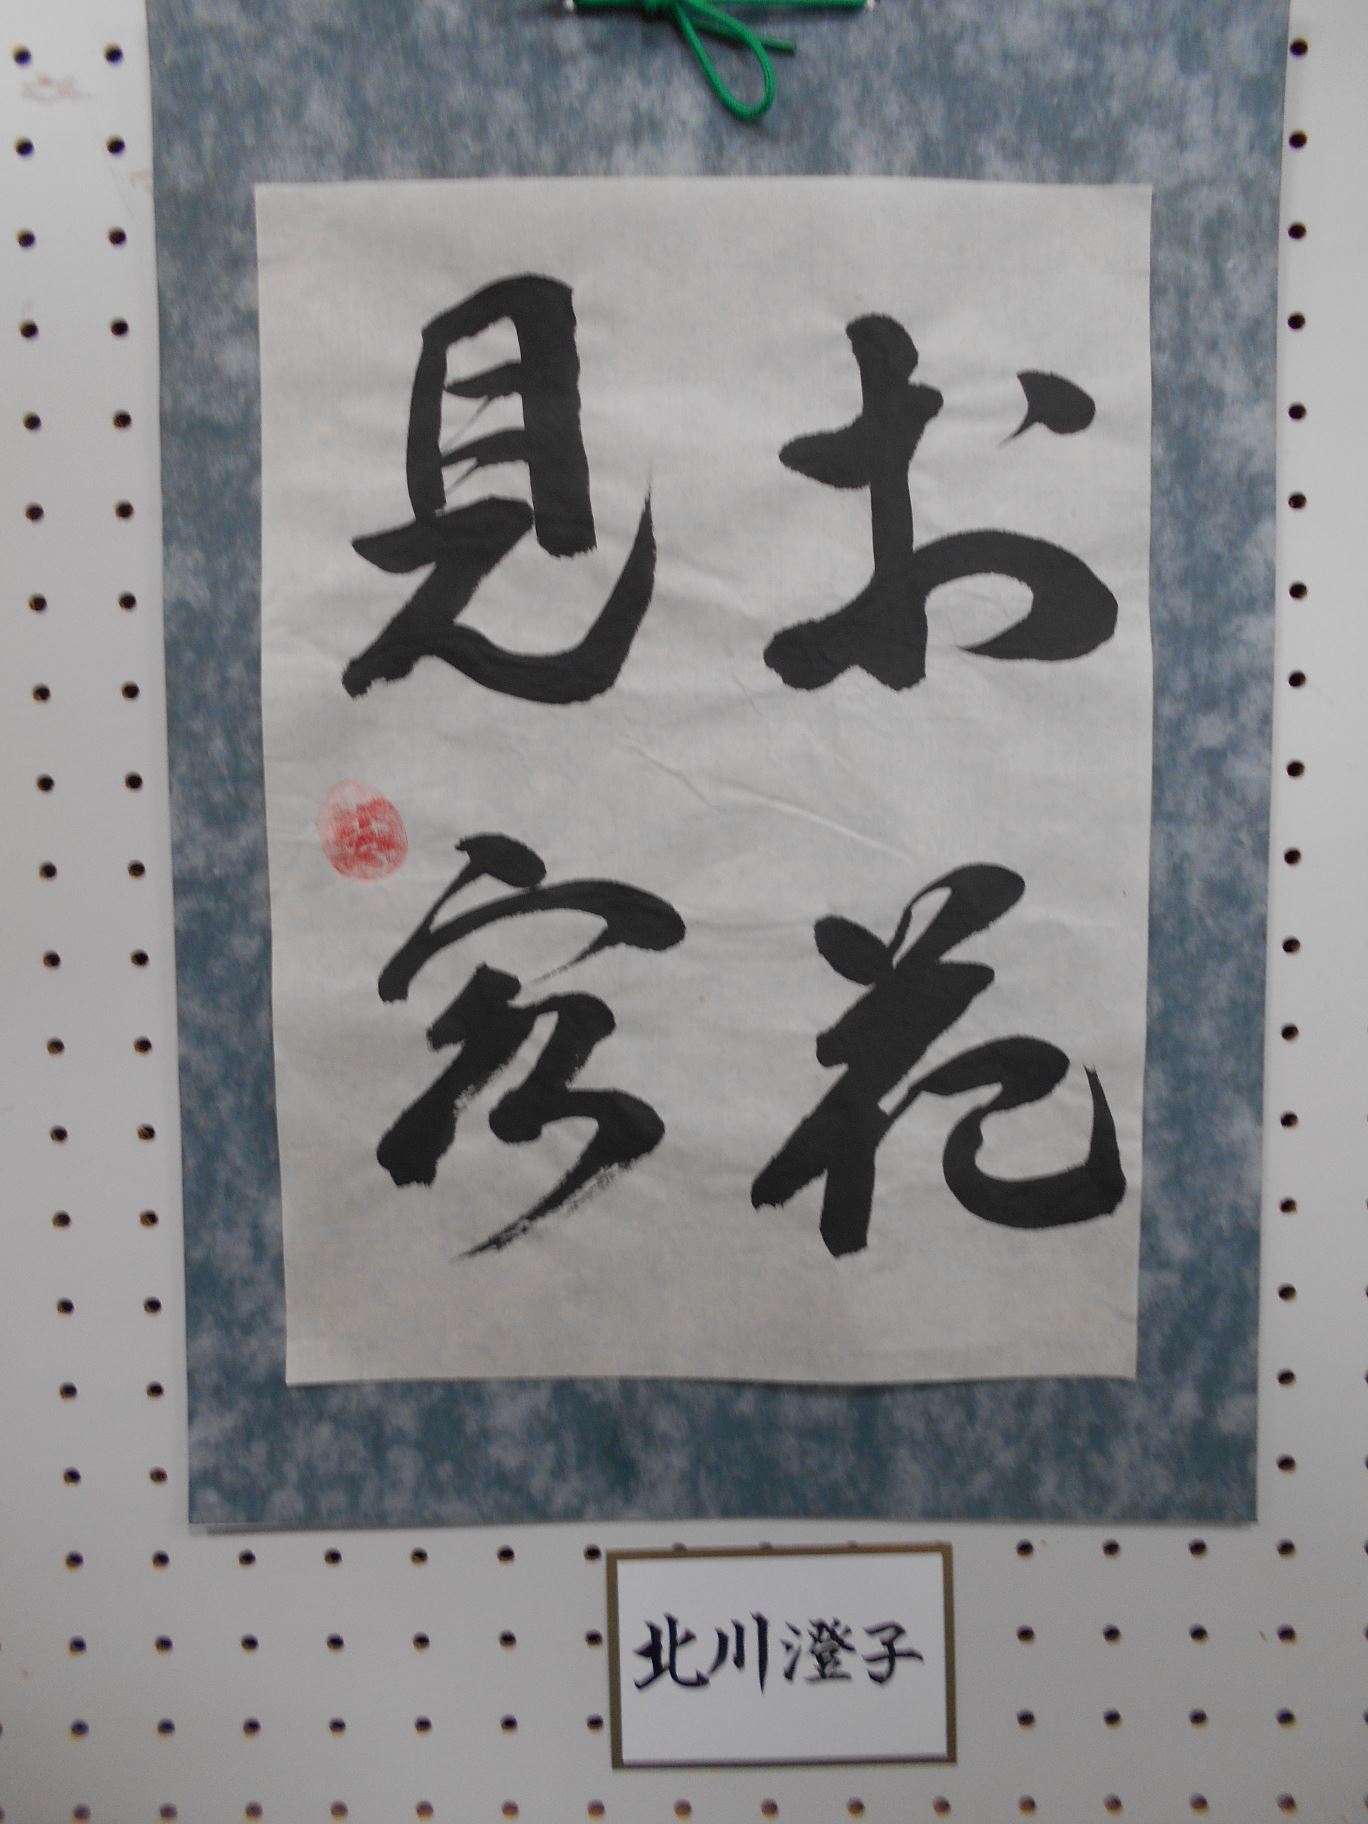 お花
見客
北川澄子